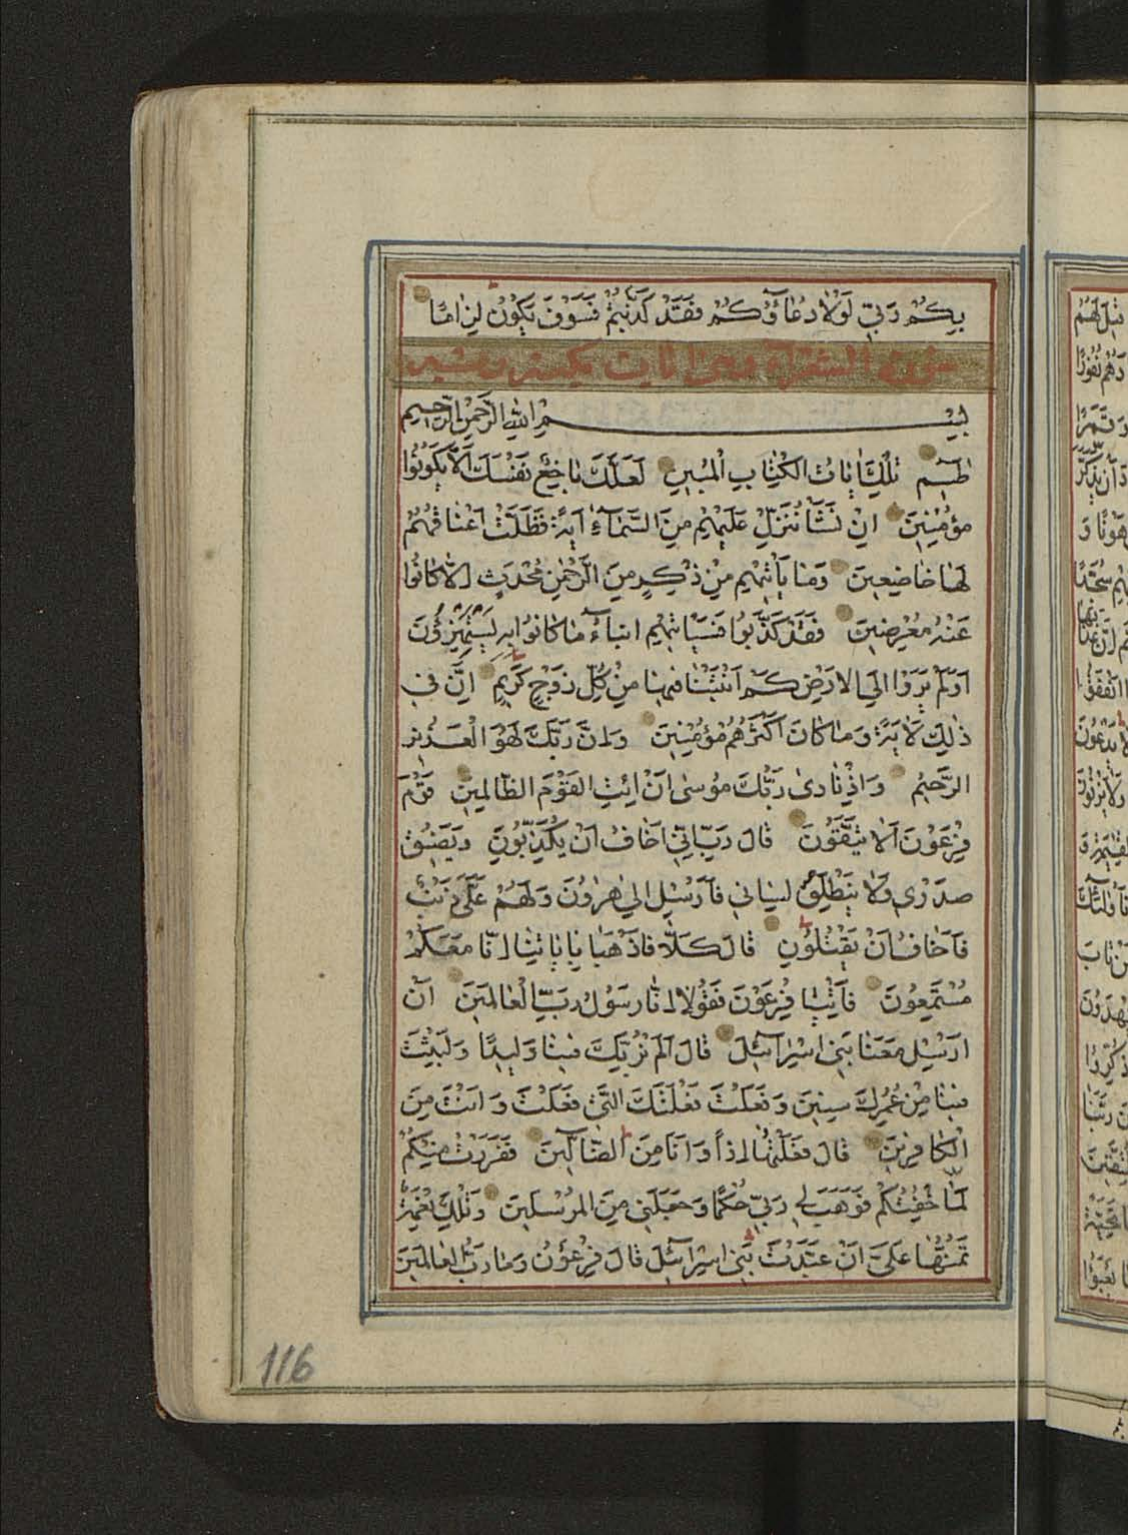 بِكُمْ رَبّي لَوْلَا دُعَاؤُكُمْ فَقَدْ كَذَّبْتُمْ فَسَوْفَ يَكُونُ لِزَامًا
سورة الشعراء
بِسْمِ اللهِ الرَّحْمٰنِ الرَّحيمِ
طٰسم تِلْكَ اٰيَاتُ الْكِتَابِ الْمُبينِ لَعَلَّكَ بَاخِعٌ نَفْسَكَ اَلَّا يَكُونُوا
مُؤْمِنينَ اِنْ نَشَأْ نُنَزِّلْ عَلَيْهِمْ مِنَ السَّمَاءِ اٰيَةً فَظَلَّتْ اَعْنَاقُهُمْ
لَهَا خَاضِعينَ وَمَا يَأْتيهِمْ مِنْ ذِكْرٍ مِنَ الرَّحْمٰنِ مُحْدَثٍ اِلَّا كَانُوا
عَنْهُ مُعْرِضينَ فَقَدْ كَذَّبُوا فَسَيَأْتيهِمْ اَنْبَاءُ مَا كَانُوا بِه يَسْتَهْزِؤُنَ
اَوَلَمْ يَرَوْا اِلَى الْاَرْضِ كَمْ اَنْبَتْنَا فيهَا مِنْ كُلِّ زَوْجٍ كَريمٍ اِنَّ في
ذٰلِكَ لَاٰيَةً وَمَا كَانَ اَكْثَرُهُمْ مُؤْمِنينَ وَاِنَّ رَبَّكَ لَهُوَ الْعَزيزُ
الرَّحيمُ وَاِذْ نَادٰى رَبُّكَ مُوسٰى اَنْ اِئْتِ الْقَوْمَ الظَّالِمينَ قَوْمَ
فِرْعَوْنَ اَلَا يَتَّقُونَ قَالَ رَبِّ اِنّي اَخَافُ اَنْ يُكَذِّبُونِ وَيَضيقُ
صَدْري وَلَا يَنْطَلِقُ لِسَاني فَاَرْسِلْ اِلٰى هٰرُونَ وَلَهُمْ عَلَيَّ ذَنْبٌ
فَاَخَافُ اَنْ يَقْتُلُونِ قَالَ كَلَّا فَاذْهَبَا بِاٰيَاتِنَا اِنَّا مَعَكُمْ
مُسْتَمِعُونَ فَأْتِيَا فِرْعَوْنَ فَقُولَا اِنَّا رَسُولُ رَبِّ الْعَالَمينَ اَنْ
اَرْسِلْ مَعَنَا بَني اِسْرَائلَ قَالَ اَلَمْ نُرَبِّكَ فينَا وَليدًا وَلَبِثْتَ
فينَا مِنْ عُمُرِكَ سِنينَ وَفَعَلْتَ فَعْلَتَكَ الَّتي فَعَلْتَ وَاَنْتَ مِنَ
الْكَافِرينَ قَالَ فَعَلْتُهَا اِذًا وَاَنَا مِنَ الضَّالّينَ فَفَرَرْتُ مِنْكُمْ
لَمَّا خِفْتُكُمْ فَوَهَبَ لي رَبّي حُكْمًا وَجَعَلَني مِنَ الْمُرْسَلينَ وَتِلْكَ نِعْمَةٌ
تَمُنُّهَا عَلَيَّ اَنْ عَبَّدْتَ بَني اِسْرَائلَ قَالَ فِرْعَوْنُ وَمَا رَبُّ الْعَالَمينَ
116